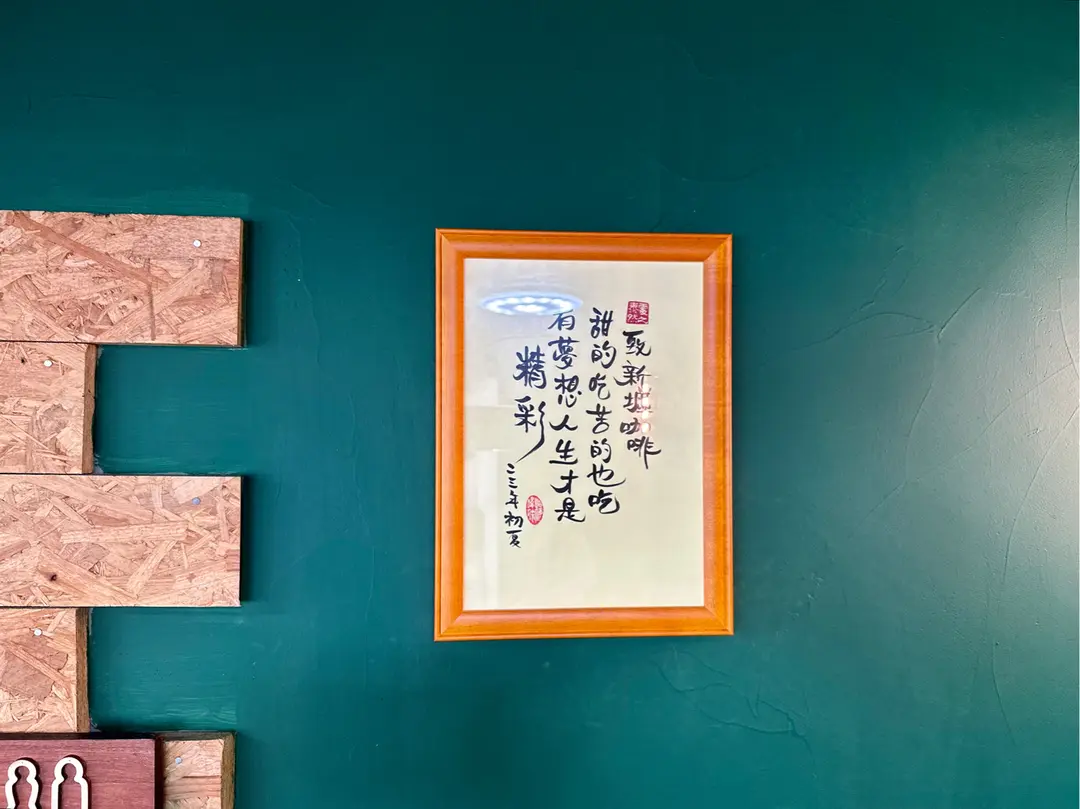 致新堀咖啡
甜的吃苦的也吃
有夢想人生才是
精彩
二三年初夏